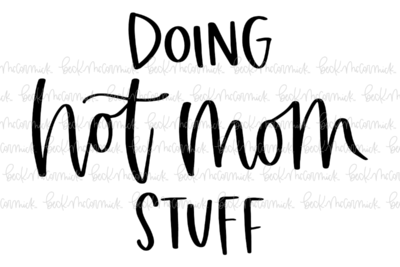 DOING
hot mom
STUFF